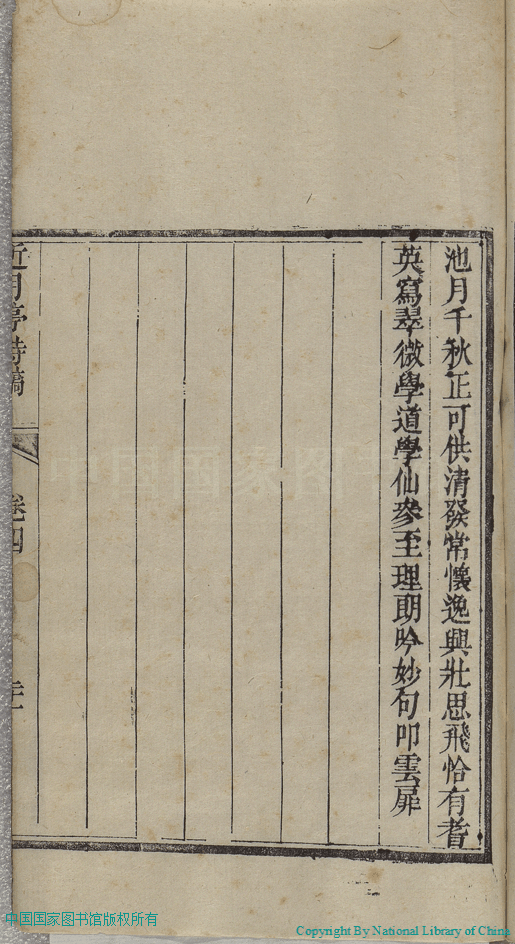 池月千秋正可供清發常懷逸興壯思飛恰有耆
英寫翠微學道學仙參至理朗吟妙句叩雲扉
近月亭詩稿
卷四
中国国家图书馆版权所有
Copyright By National Library of China